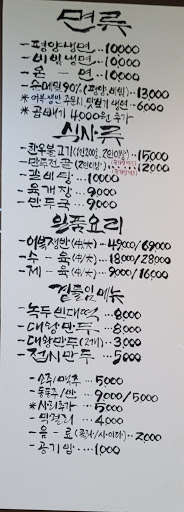 면류
- 평양냉면 ... 10,000
- 비빔냉면 ... 10,000
- 온 - 면 ... 10,000
- 순메밀90% (평양, 비빔) ... 13,000
* 어복쟁반 주문시 맛보기 냉면 ... 6,000
* 곱배기 4,000원 추가
식사류
- 한우불고기(1인200g, 2인이상) ... 15,000
- 만두전골(2인이상) ... 12,000
- 갈비탕 ... 10,000
- 육개장 ... 9,000
- 만두국 ... 9,000
일품요리
- 어복쟁반(中/大) ... 49,000/69,000
- 수 - 육(中/大) ... 18,000/28,000
- 제 - 육(中/大) ... 9,000/16,000
곁들임메뉴
- 녹두빈대떡 ... 8,000
- 대왕만두 ... 8,000
- 대왕만두(2개) ... 3,000
- 접시만두 ... 5,000
- 소주/맥주 ... 5,000
- 동동주/반 ... 9,000/5,000
* 사리추가 ... 5,000
- 막걸리 ... 4,000
- 음 - 료(콜라/사이다) ... 2,000
- 공기밥 ... 1,000